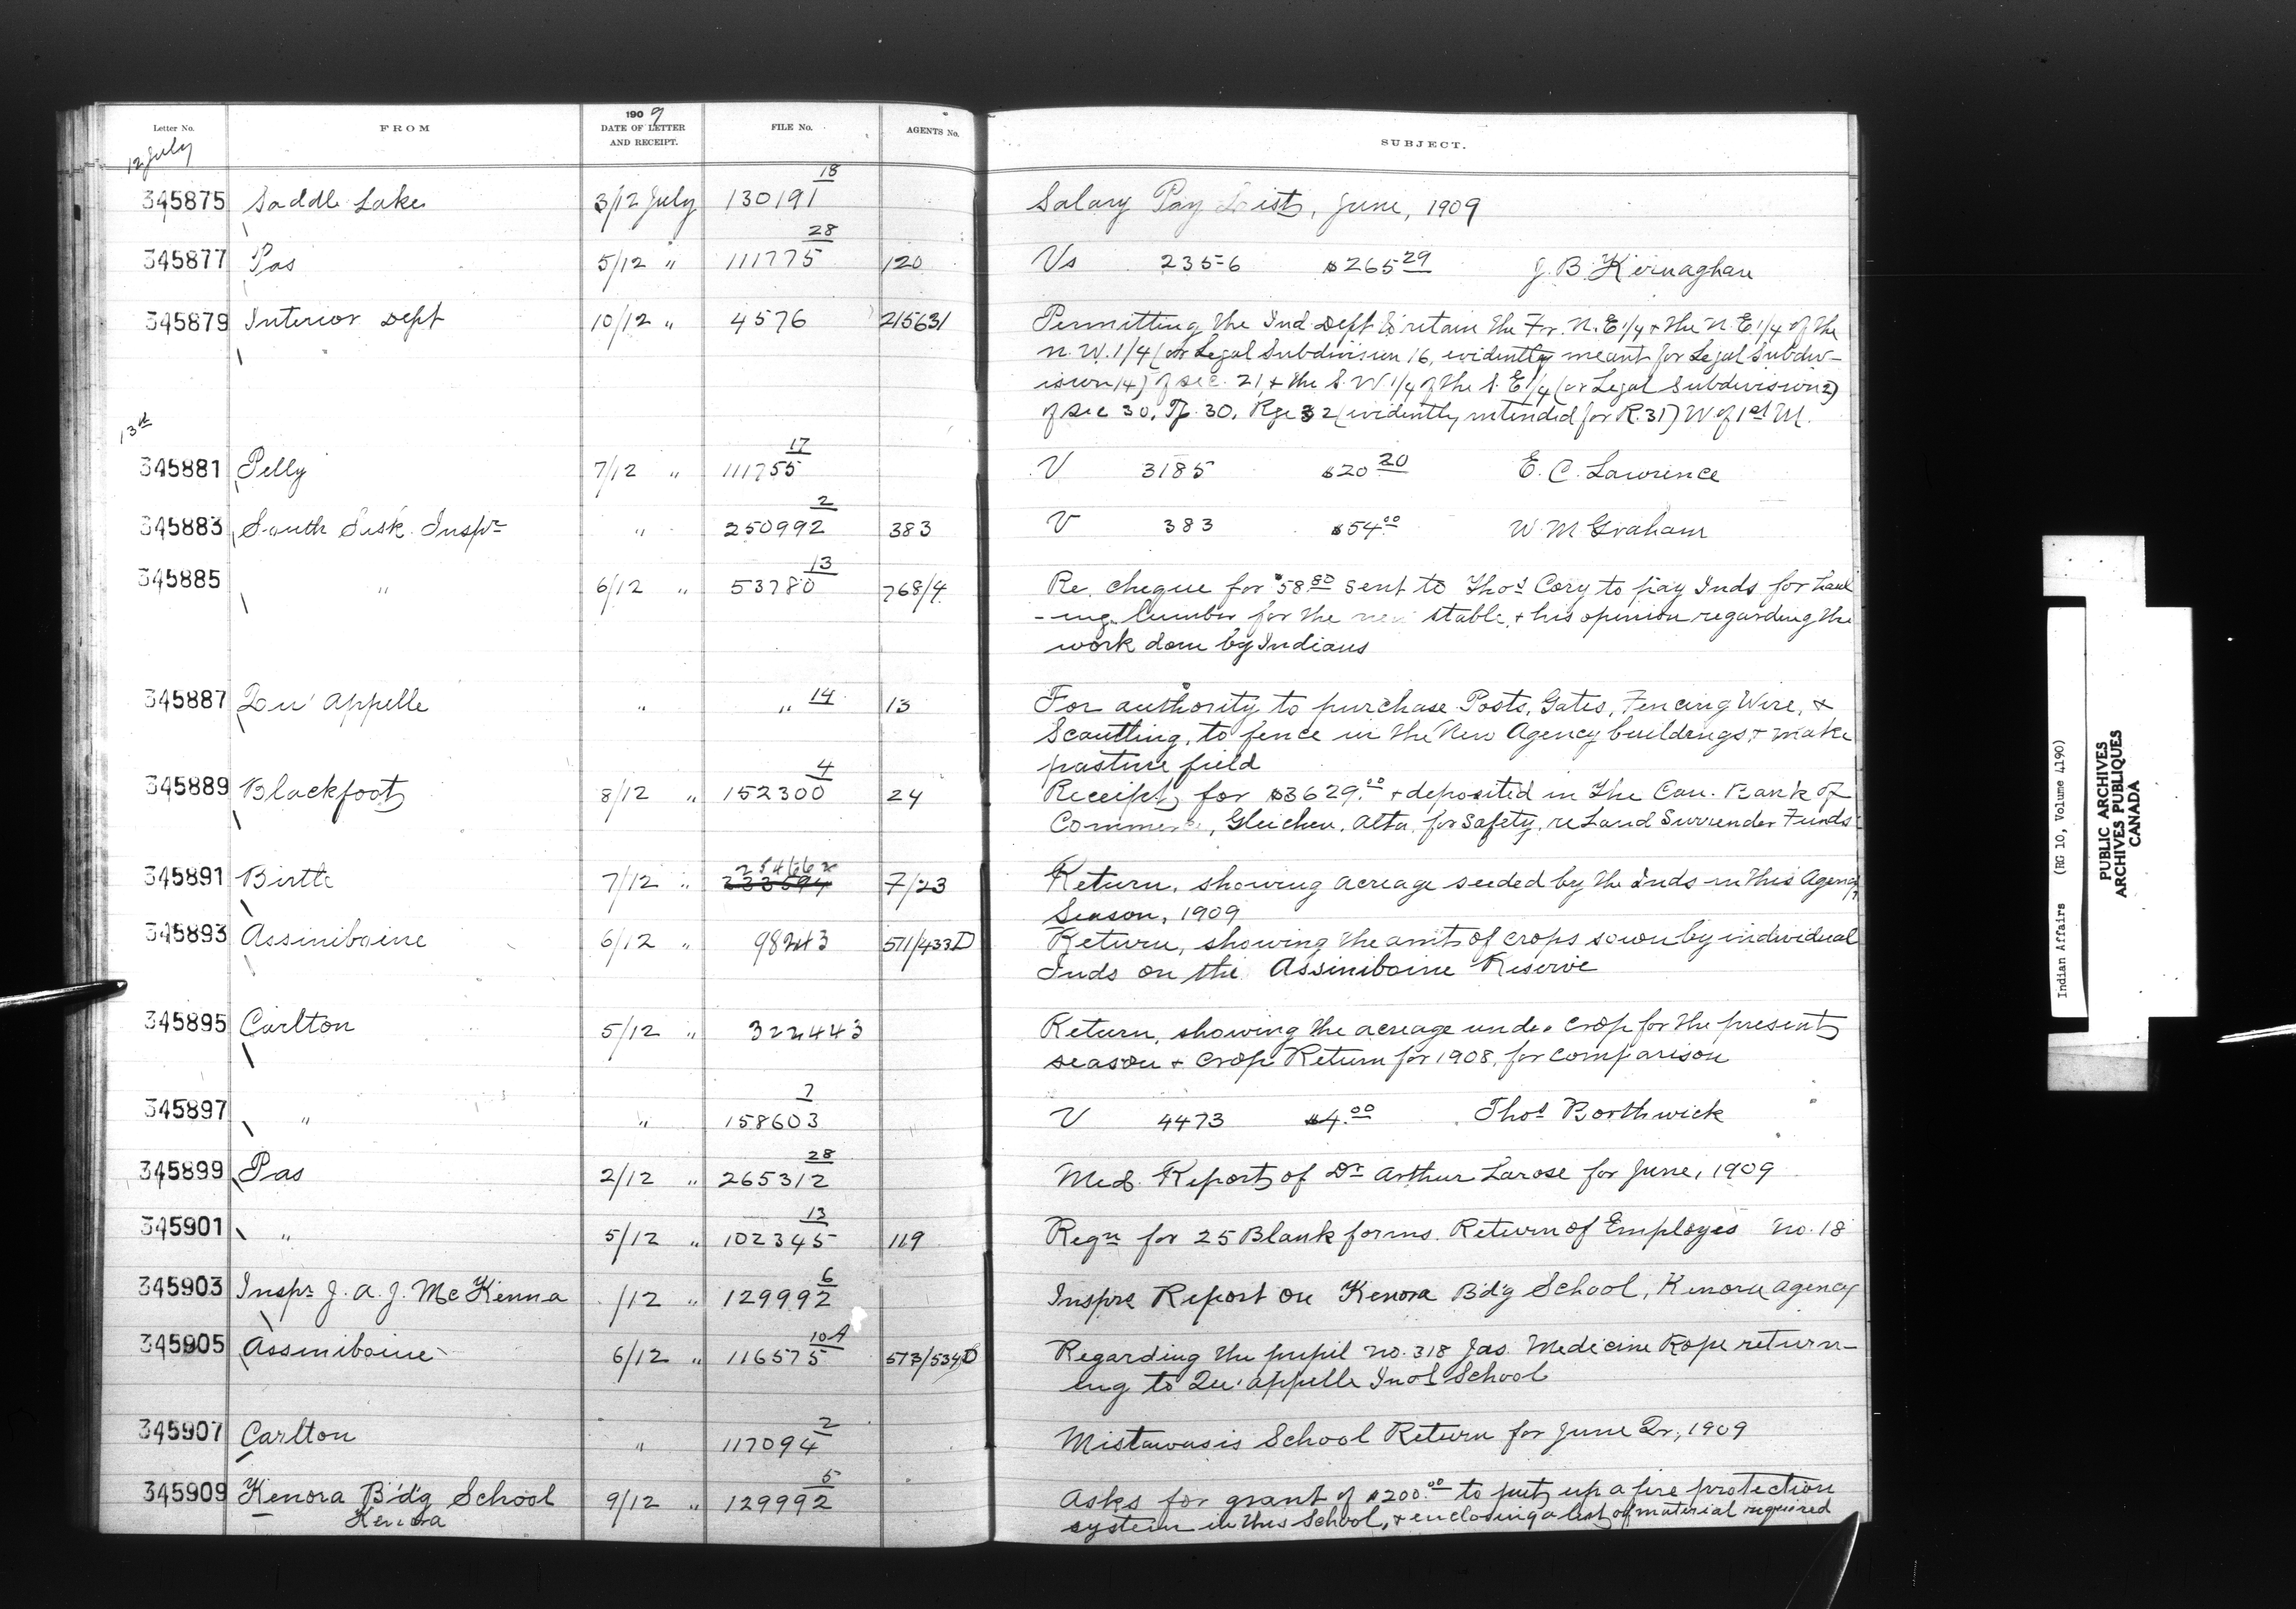 Letter No. FROM 190 9 DATE OF LETTER AND RECEIPT. FILE No. AGENTS No. SUBJECT.
12 July
345875 Saddle Lake 3/12 July 130191 18 Salary Pay List, June, 1909
345877 Pas 5/12 " 111775 28 120 Vs 2356 $265 29 J. B. Kernaghan
345879 Interior Dept 10/12 " 4576 215631 Permitting the Ind. Dept to retain the Fr. N.E 1/4 + the N.E 1/4 of the
N.W. 1/4 (or Legal Subdivision 16, evidently meant for Legal Subdiv-
ision 14) of Sec. 21, + the S.W 1/4 of the S.E 1/4 (or Legal Subdivision 2)
of Sec 30. Tp. 30. Rge 32 (evidently intended for R. 31) W. of 1st M.
13th
345881 Pelly 7/12 " 111755 17 V 3185 $20 20 E. C. Lawrence
345883 South Sask. Inspr " 250992 2 383 V 383 $54 00 W. M Graham
345885 " 6/12 " 53780 13 768/4 Re. cheque for $58.80 sent to Thos Cory to pay Inds for haul
-ing lumber for the new stable, + his opinion regarding the
work done by Indians
345887 Qu'Appelle " " 14 13 For authority to purchase Posts, Gates, Fencing Wire, +
Scantling, to fence in the New Agency buildings + make
pasture field
345889 Blackfoot 8/12 " 152300 4 24 Receipt for $3629.00 + deposited in the Can. Bank of
Commerce, Gleichen, Alta, for safety, re Land Surrender Funds
345891 Birtle 7/12 " 254662 233594 7/23 Return, showing acreage seeded by the Inds in this Agency
Season, 1909
345893 Assiniboine 6/12 " 98243 571/433D Return, showing the amt of crops sown by individual
Inds on the Assiniboine Reserve
345895 Carlton 5/12 " 322443 Return, showing the acreage under crop for the present
season + crop Return for 1908, for comparison
345897 " " 158603 7 V 4473 $4.00 Thos Borthwick
345899 Pas 2/12 " 265312 28 Med. Report of Dr Arthur Larose for June, 1909
345901 " 5/12 " 102345 13 119 Reqn for 25 Blank forms. Return of Employes No. 18
345903 Inspr J. A. J. McKenna /12 " 129992 6 Insprs Report on Kenora Bd'g School, Kenora Agency
345905 Assiniboine 6/12 " 116575 10A 573/534D Regarding the pupil No. 318 Jas. Medicine Rope return-
ing to Qu'Appelle Indl School
345907 Carlton " 117094 2 Mistawasis School Return for June Qr, 1909
345909 Kenora B'd'g School 9/12 " 129992 5 Asks for grant of $200.00 to put up a fire protection
Kenora system in this School, + enclosing a list of material required
Indian Affairs (RG 10, Volume 4190)
PUBLIC ARCHIVES
ARCHIVES PUBLIQUES
CANADA